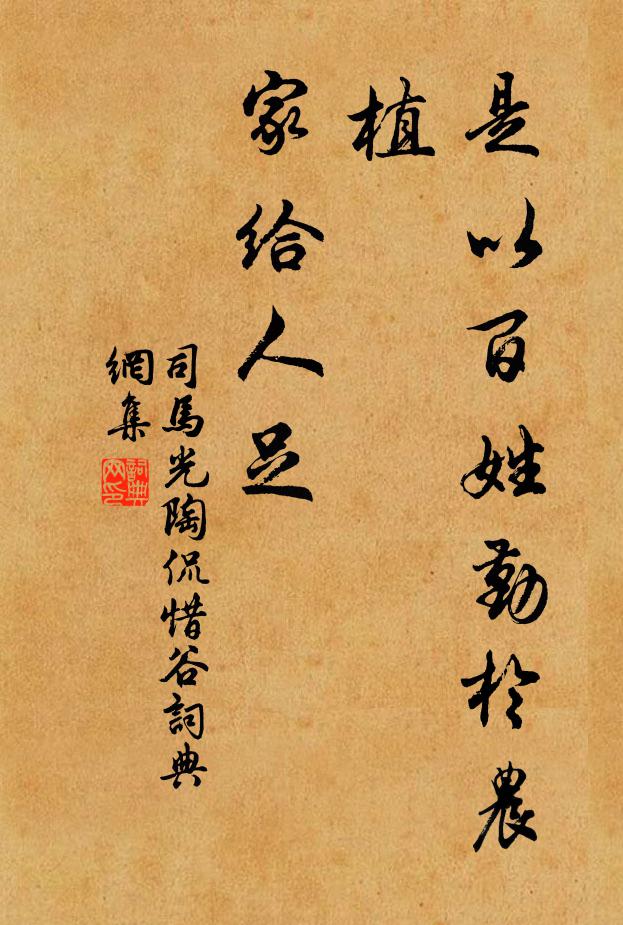 是以百姓勤於農
植
家給人足
司馬光陶侃惜谷詞典
網集
詞典
网印